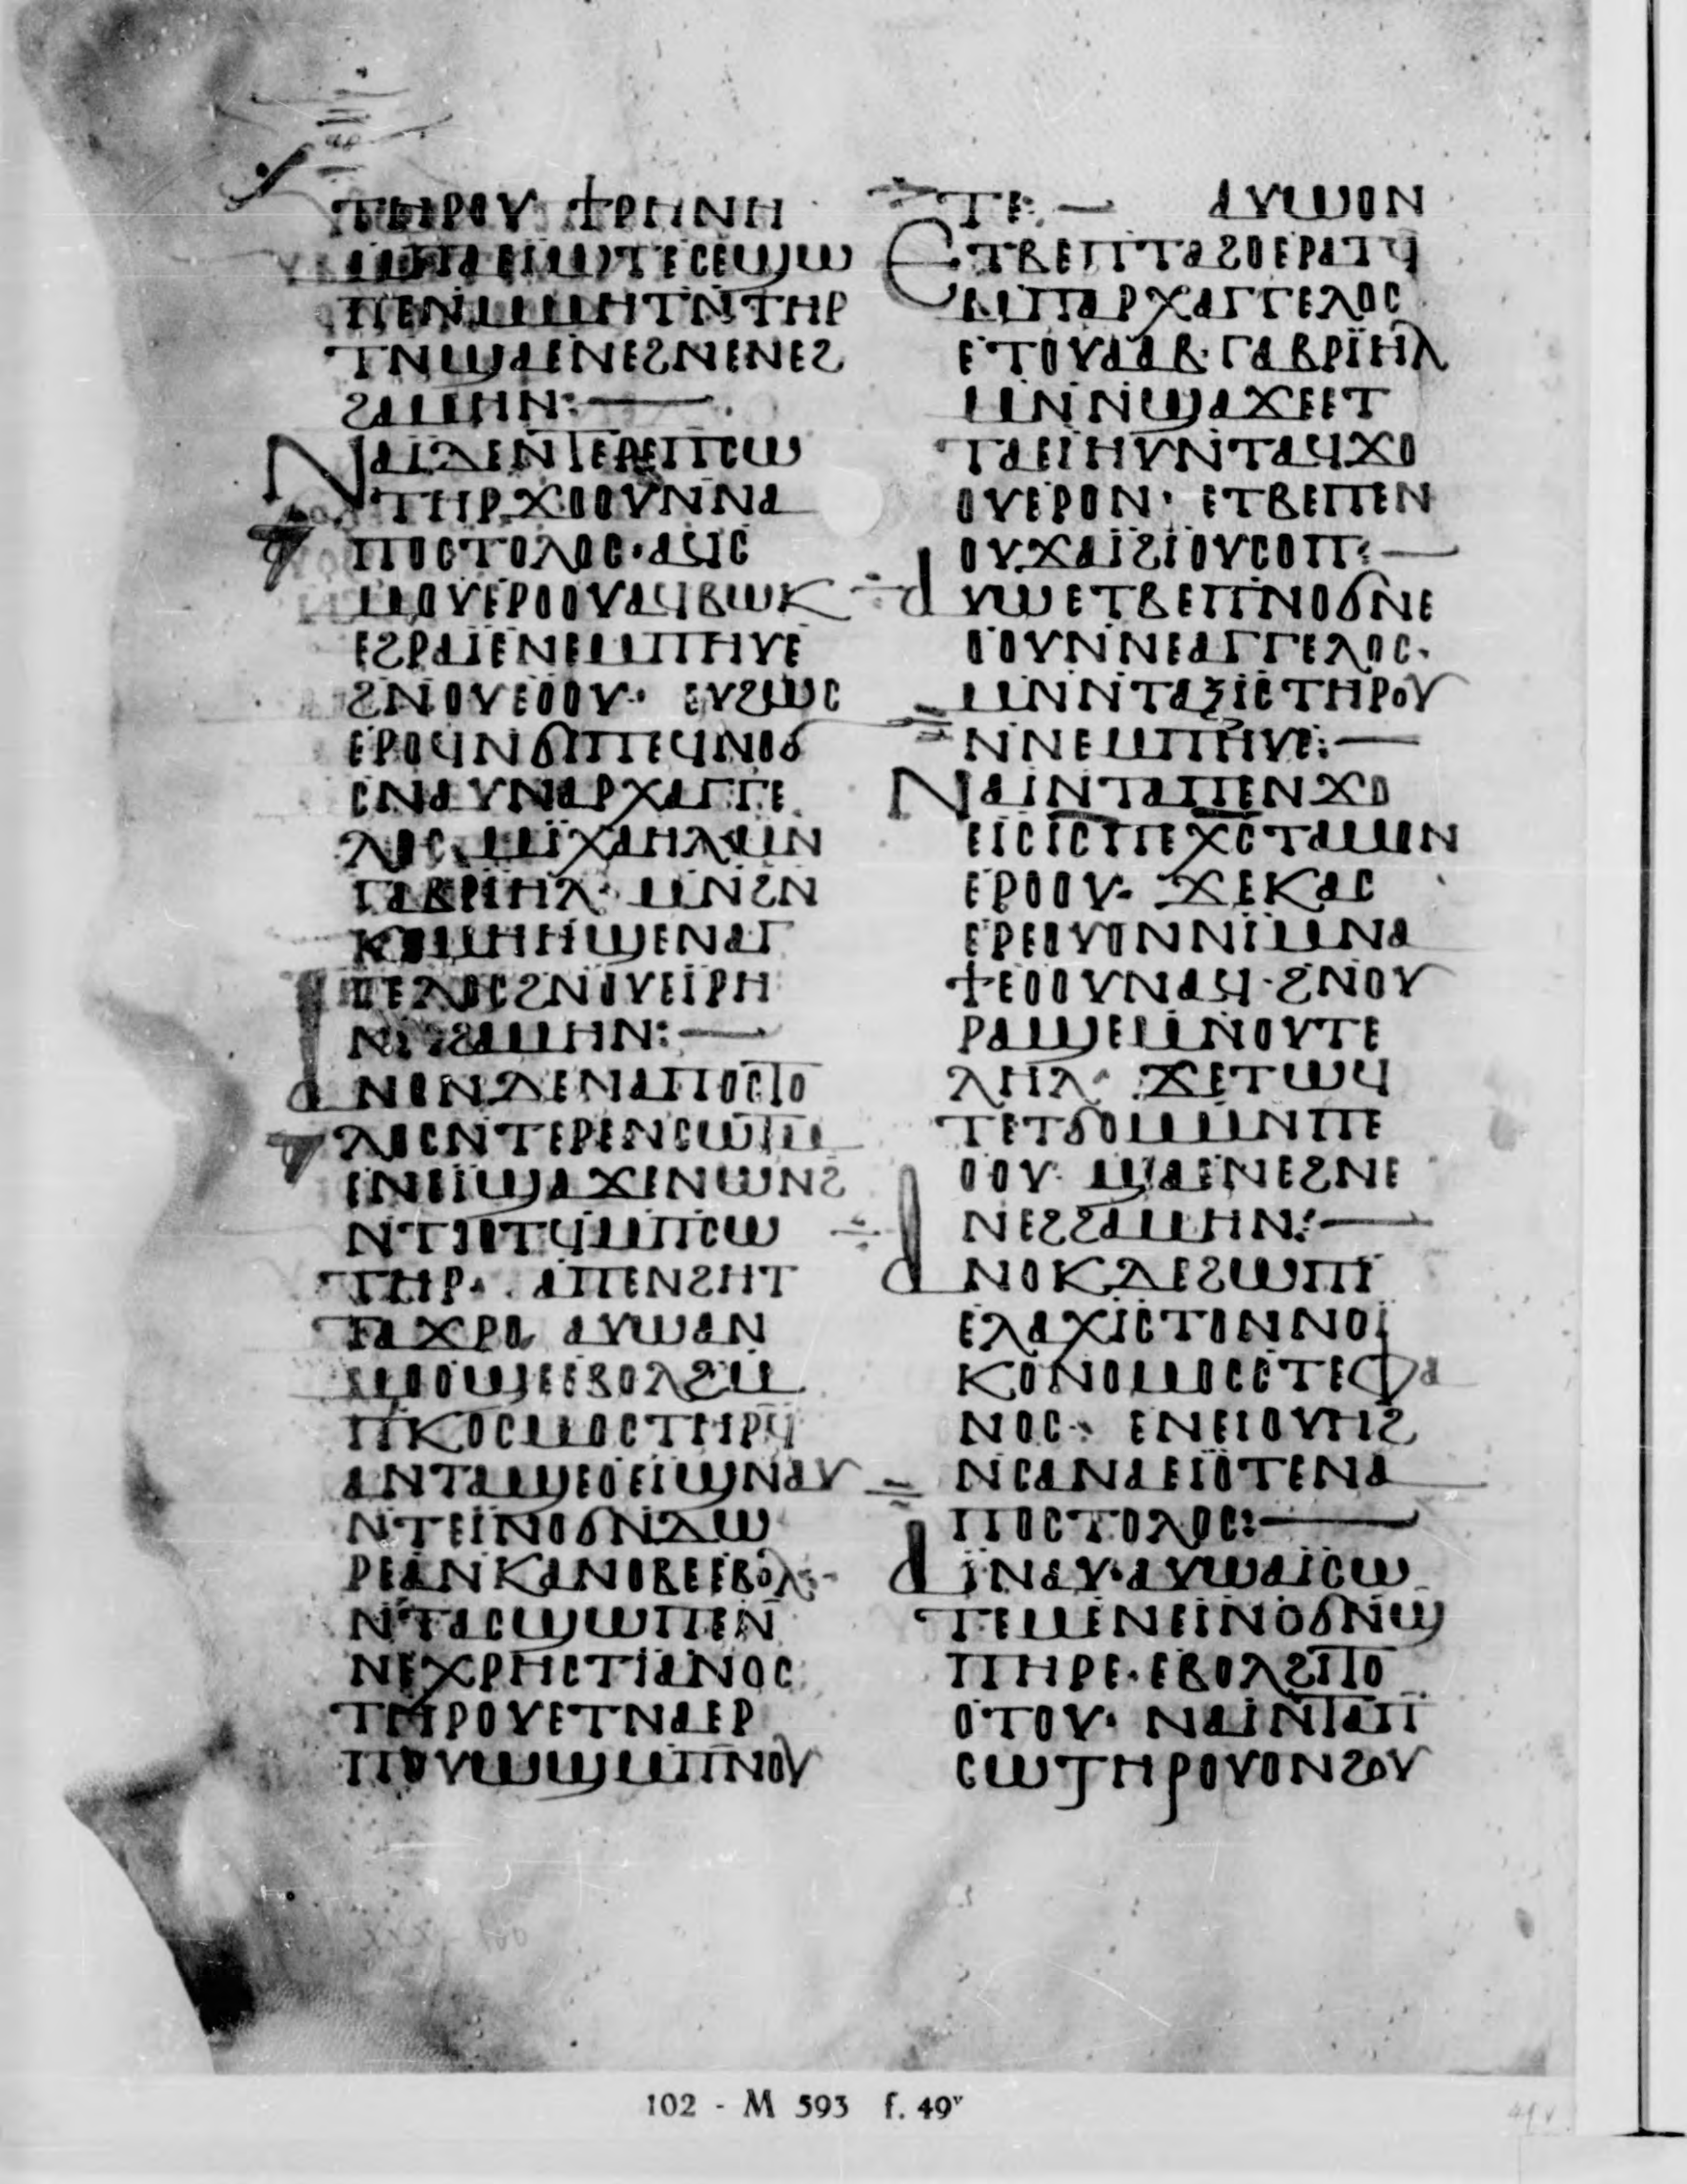 ⲧⲏⲣⲟⲩ ϯⲣⲏⲛⲏ
ⲙⲡⲁⲉⲓⲱⲧⲉⲥⲉϣⲱ
ⲡⲉⲛⲙⲙⲏⲧⲛⲧⲏⲣ
ⲧⲛϣⲁⲉⲛⲉϩⲛⲉⲛⲉϩ
ϩⲁⲙⲏⲛ:—
ⲛⲁⲓⲇⲉⲛⲧⲉⲣⲉⲡⲥⲱ
ⲧⲏⲣϫⲟⲟⲩⲛⲛⲁ
ⲡⲟⲥⲧⲟⲗⲟⲥ·ⲁϥⲓⲥ
ⲙⲟⲩⲉⲣⲟⲟⲩⲁϥⲃⲱⲕ
ⲉϩⲣⲁⲓⲉⲛⲉⲙⲡⲏⲩⲉ
ϩⲛⲟⲩⲉⲟⲟⲩ· ⲉⲩϩⲱⲥ
ⲉⲣⲟϥⲛϭⲓⲡⲉϥⲛⲟϭ
ⲥⲛⲁⲩⲛⲁⲣⲭⲁⲅⲅⲉ
ⲗⲟⲥ ⲙⲓⲭⲁⲏⲗⲙⲛ
ⲅⲁⲃⲣⲓⲏⲗ· ⲙⲛϩⲛ
ⲕⲉⲙⲏⲏϣⲉⲛⲁⲅ
ⲅⲉⲗⲟⲥϩⲛⲟⲩⲉⲓⲣⲏ
ⲛⲏϩⲁⲙⲏⲛ:—
ⲁⲛⲟⲛⲇⲉⲛⲁⲡⲟⲥⲧⲟ
ⲗⲟⲥⲛⲧⲉⲣⲉⲛⲥⲱⲧⲙ
ⲉⲛⲉⲓϣⲁϫⲉⲛⲱⲛϩ
ⲛⲧⲟⲟⲧϥⲙⲡⲥⲱ
ⲧⲏⲣ· ⲁⲡⲉⲛϩⲏⲧ
ⲧⲁϫⲣⲟ ⲁⲩⲱⲁⲛ
ⲙⲟⲟϣⲉⲉⲃⲟⲗϩⲙ
ⲡⲕⲟⲥⲙⲟⲥⲧⲏⲣϥ
ⲁⲛⲧⲁϣⲉⲟⲉⲓϣⲛⲁⲩ
ⲛⲧⲉⲓⲛⲟϭⲛⲇⲱ
ⲣⲉⲁⲛⲕⲁⲛⲟⲃⲉⲉⲃⲟⲗ:-
ⲛⲧⲁⲥϣⲱⲡⲉⲛ
ⲛⲉⲭⲣⲏⲥⲧⲓⲁⲛⲟⲥ
ⲧⲏⲣⲟⲩⲉⲧⲛⲁⲉⲣ
ⲡⲟⲩⲱϣⲙⲡⲛⲟⲩ
ⲧⲉ:— ⲁⲩⲱⲟⲛ
ⲉⲧⲃⲉⲡⲧⲁϩⲟⲉⲣⲁⲧϥ
ⲙⲡⲁⲣⲭⲁⲅⲅⲉⲗⲟⲥ
ⲉⲧⲟⲩⲁⲁⲃ·ⲅⲁⲃⲣⲓⲏⲗ
ⲙⲛⲛϣⲁϫⲉⲉⲧ
ⲧⲁⲉⲓⲏⲩⲛⲧⲁϥϫⲟ
ⲟⲩⲉⲣⲟⲛ· ⲉⲧⲃⲉⲡⲉⲛ
ⲟⲩϫⲁⲓϩⲓⲟⲩⲥⲟⲡ:—
ⲁⲩⲱⲉⲧⲃⲉⲡⲛⲟϭⲛⲉ
ⲟⲟⲩⲛⲛⲉⲁⲅⲅⲉⲗⲟⲥ·
ⲙⲛⲛⲧⲁⲝⲓⲥⲧⲏⲣⲟⲩ
ⲛⲛⲉⲙⲡⲏⲩⲉ:—
ⲛⲁⲓⲛⲧⲁⲡⲉⲛϫⲟ
ⲉⲓⲥⲓⲥⲡⲉⲭⲥⲧⲁⲙⲟⲛ
ⲉⲣⲟⲟⲩ· ϫⲉⲕⲁⲥ
ⲉⲣⲉⲟⲩⲟⲛⲛⲓⲙⲛⲁ
ϯⲉⲟⲟⲩⲛⲁϥ·ϩⲛⲟⲩ
ⲣⲁϣⲉⲙⲛⲟⲩⲧⲉ
ⲗⲏⲗ· ϫⲉⲧⲱϥ
ⲧⲉⲧϭⲟⲙⲙⲛⲡⲉ
ⲟⲟⲩ· ϣⲁⲉⲛⲉϩⲛⲉ
ⲛⲉϩϩⲁⲙⲏⲛ:—
ⲁⲛⲟⲕⲇⲉϩⲱⲡⲓ
ⲉⲗⲁⲭⲓⲥⲧⲟⲛⲛⲟⲓ
ⲕⲟⲛⲟⲙⲟⲥⲥⲧⲉⲫⲁ
ⲛⲟⲥ· ⲉⲛⲉⲓⲟⲩⲏϩ
ⲛⲥⲁⲛⲁⲉⲓⲟⲧⲉⲛⲁ
ⲡⲟⲥⲧⲟⲗⲟⲥ:—
ⲁⲓⲛⲁⲩ·ⲁⲩⲱⲁⲓⲥⲱ
ⲧⲉⲙⲉⲛⲉⲓⲛⲟϭⲛϣ
ⲡⲏⲣⲉ·ⲉⲃⲟⲗϩⲓⲧⲟ
ⲟⲧⲟⲩ· ⲛⲁⲓⲛⲧⲁⲡ
ⲥⲱⲧⲏⲣⲟⲩⲟⲛϩⲟⲩ
102 - M 593 f. 49ᵛ